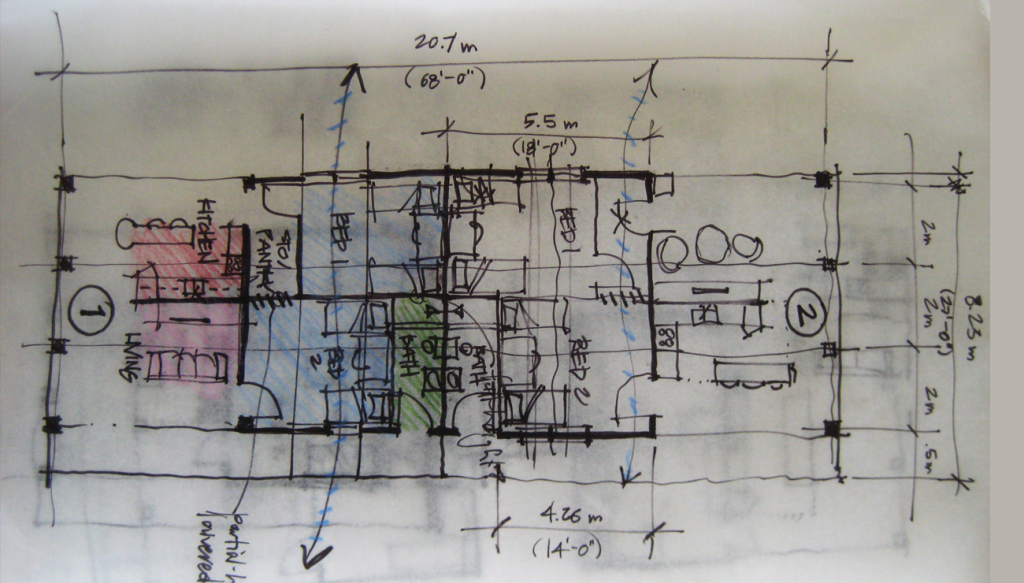 20.7 m
(68'-0")
5.5 m
(18'-0")
KITCHEN
STO/
PANTRY
BED 1
BED 1
2m
2m
2m
.5m
8.23 m
(27'-0")
1
2
LIVING
BED
2
BATH
BATH
BED 2
4.26 m
(14'-0")